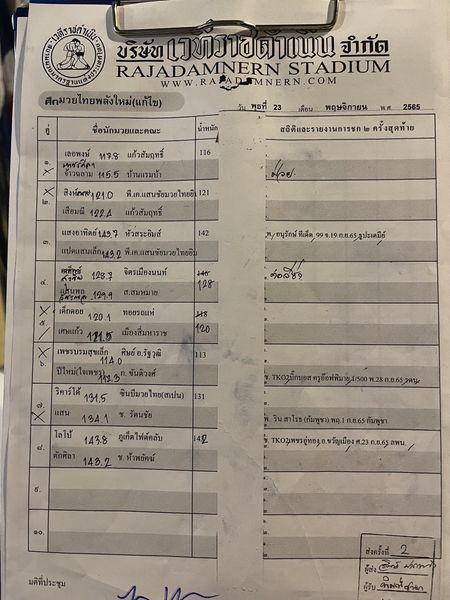 บริษัท เวทีราชดำเนิน จำกัด
RAJADAMNERN STADIUM
WWW.RAJADAMNERN.COM
ศึกมวยไทยพลังใหม่(แก้ไข)
วัน พุธที่ 23 เดือน พฤศจิกายน พ.ศ 2565
คู่ ชื่อนักมวยและคณะ น้ำหนัก สถิติและรายงานการชก ๒ ครั้งสุดท้าย
๑. เลอพงษ์ 117.8 แก้วสัมฤทธิ์ 116
X จ้าวฉลาม 115.5 บ้านแรมบ้า
X สิงห์ 121.0 พี.เค.แสนชัยมวยไทยยิม 121
๒. เสือมณี 122.4 แก้วสัมฤทธิ์
แสงอาทิตย์ 143.7 หัวสระยิมส์ 142 พ. อนุรักษ์ ทีเด็ด, 99 จ.19 ก.ย.65,รูปะเตมีย์
๓. แปดแสนเล็ก 143.2 พี.เค.แสนชัยมวยไทยยิม
๔. 128.7 จิตรเมืองนนท์ 128
แสนพล 129.9 ส.สมหมาย
X เด็กดอย 120.1 ทอยรถแห่ 118
๕. เศษแก้ว 121.5 เมืองสี่มหาราช 120
X เพชรบรมสุขเล็ก 114.0 ศิษย์ อ.รัฐวุฒิ 113
๖. ปีใหม่(ใจเพชร) 112.3 ก. ขันติวงศ์ ช. TKO2บิ๊กบอส ครูอ๊อฟพิมาย,1/500 พ.28 ก.ย.65
๗. ริคาร์โด้ 131.5 ซินบีมวยไทย(สเปน) 131
X แสน 134.1 ช. รัตนชัย พ. ริน สาโรธ (กัมพูชา) พฤ.1 ก.ย.65 กัมพูชา
โลโบ้ 143.8 ภูเก็ตไฟต์คลับ 142 ช. TKO2เพชรอู่ทอง,อ.ขวัญเมือง ศ.23 ก.ย.65 ลพน.
๘. ศักศิลา 143.2 ช. ห้าพยัคฆ์
๙.
๑๐.
มติที่ประชุม
ส่งครั้งที่ 2
ผู้ส่ง
ผู้รับ